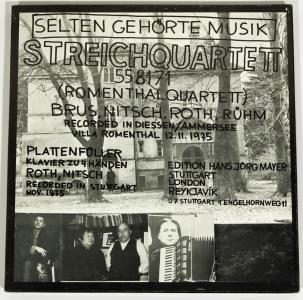 SELTEN GEHÖRTE MUSIK
STREICHQUARTETT
558171
(ROMENTHALQUARTETT)
BRUS, NITSCH, ROTH, RÜHM
RECORDED IN DIESSEN/AMMERSEE
VILLA ROMENTHAL 12.11.1975
PLATTENFÜLLER
KLAVIER ZU 4 HÄNDEN
ROTH, NITSCH
RECORDED IN STUTTGART
NOV. 1975
EDITION HANSJÖRG MAYER
STUTTGART
LONDON
REYKJAVÍK
D7 STUTTGART 1 ENGELHORNWEG 11